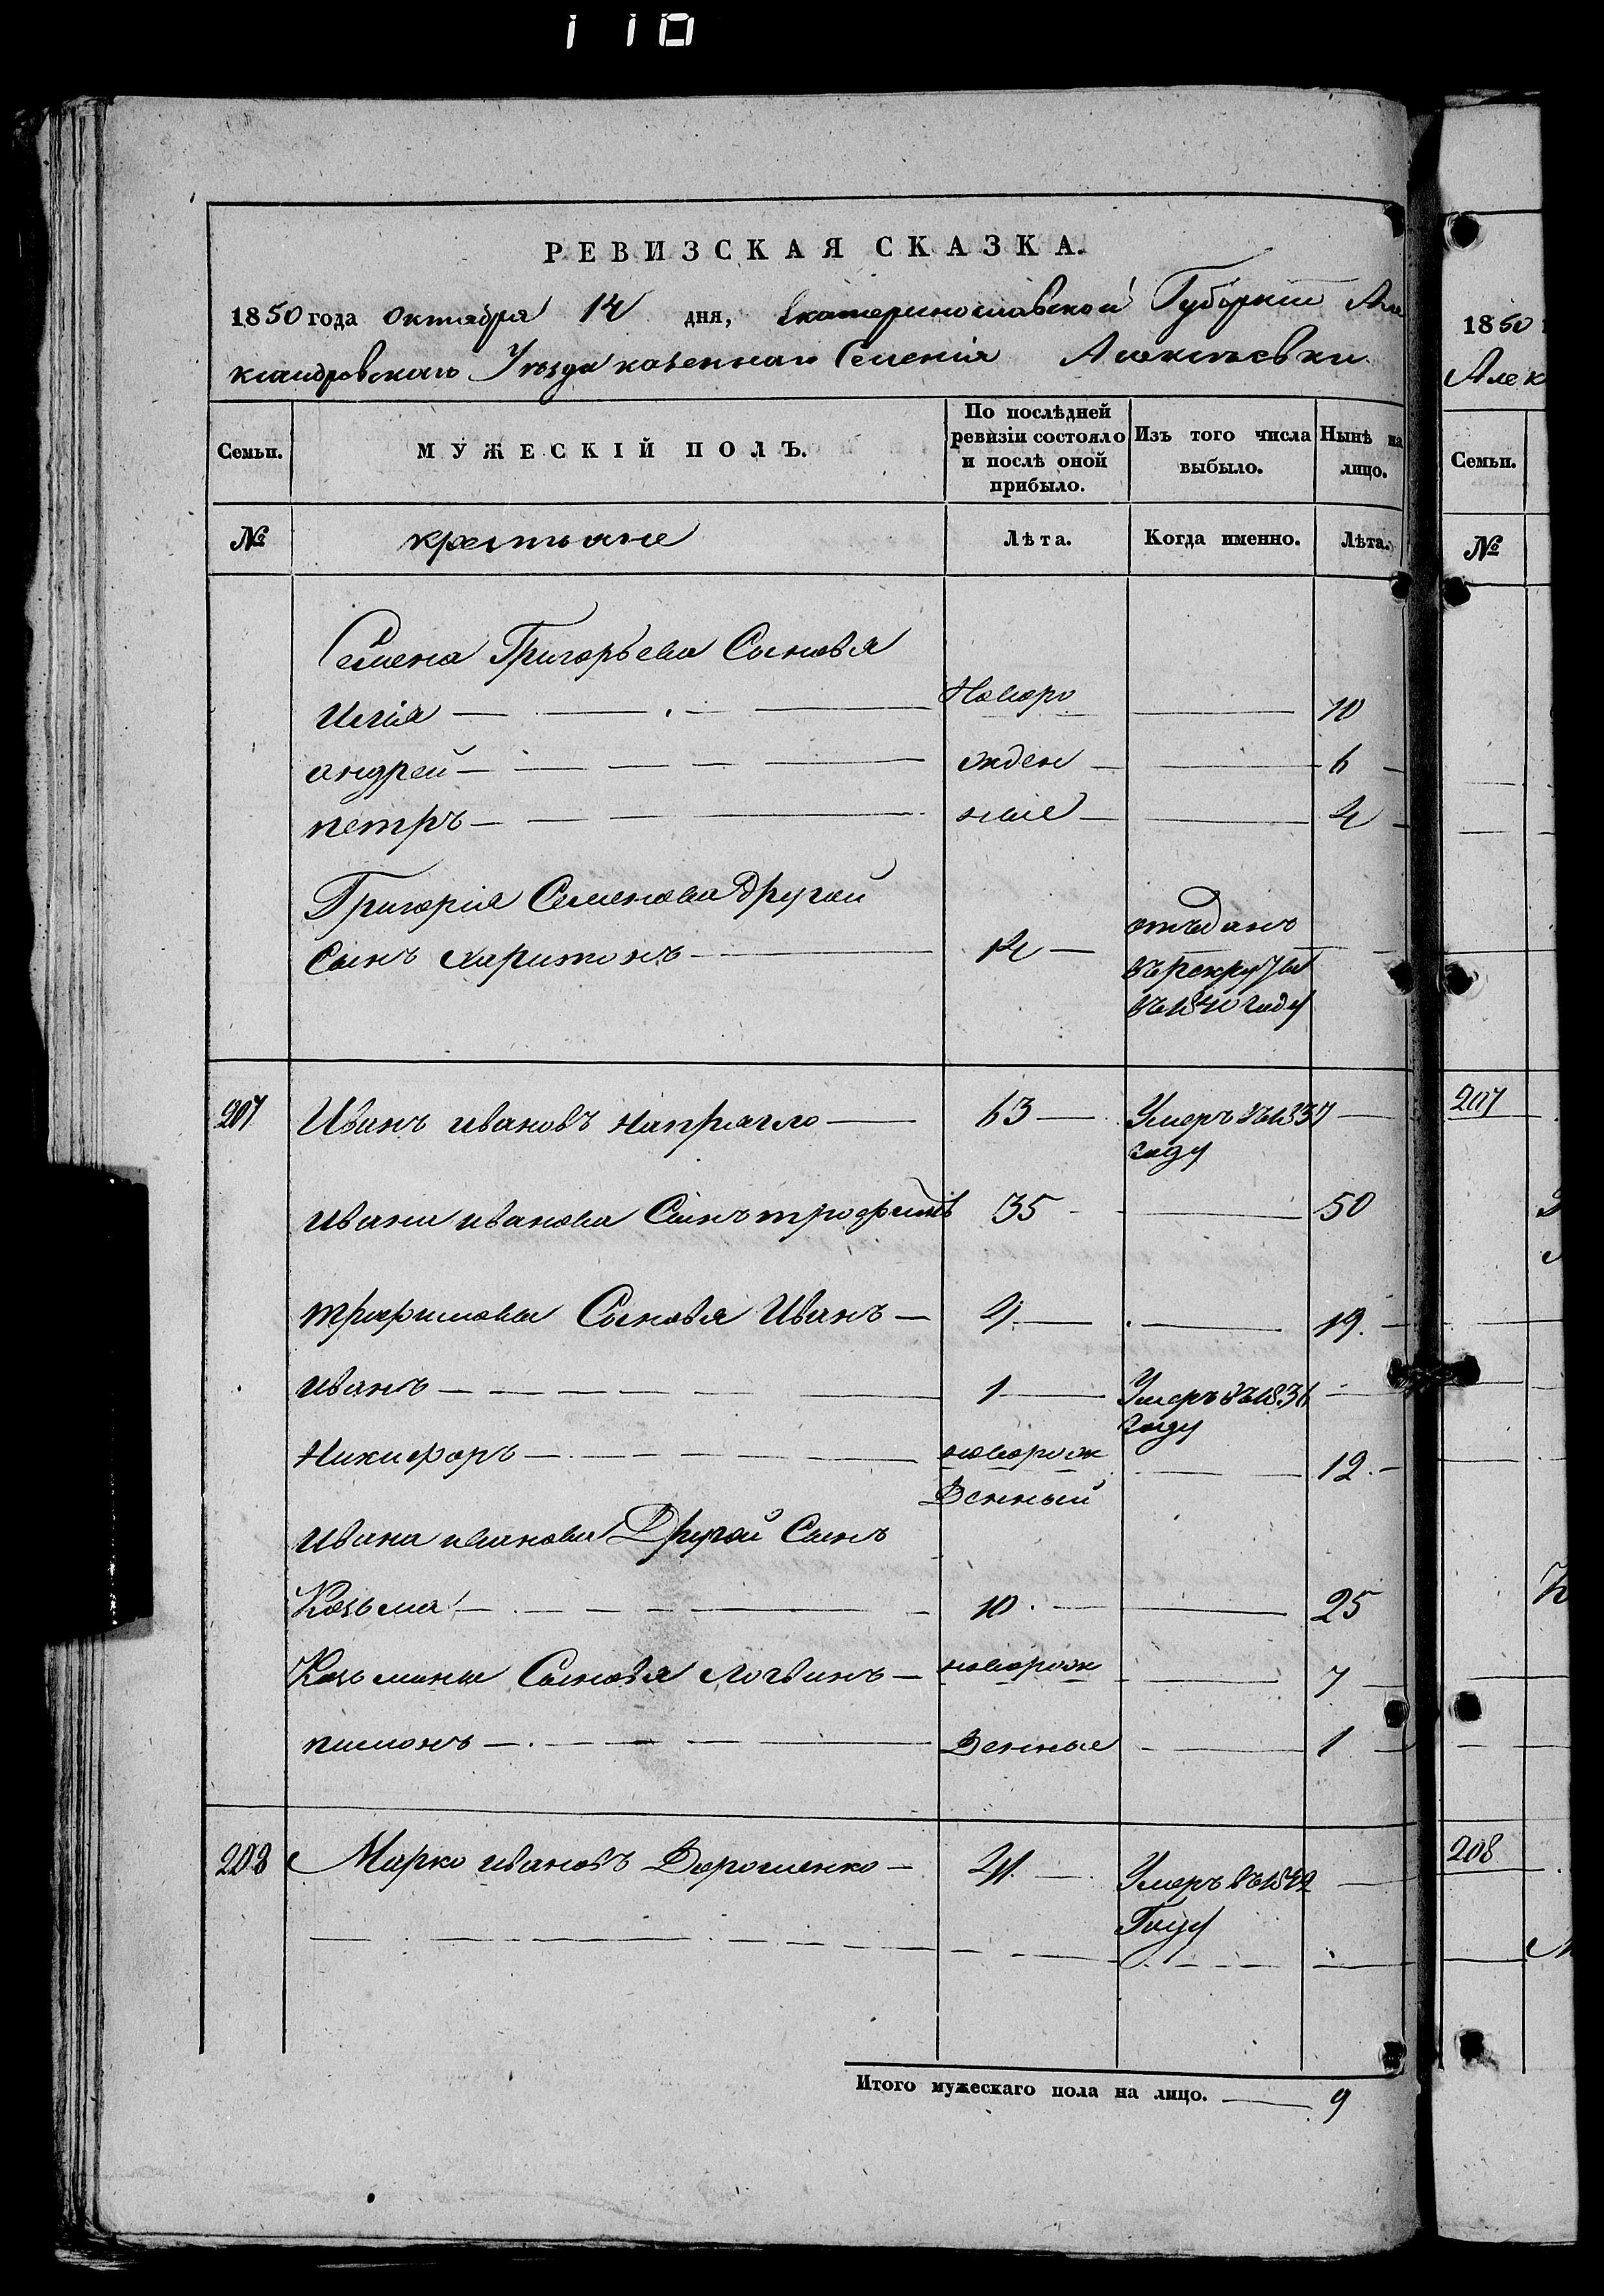 110
РЕВИЗСКАЯ СКАЗКА.
1850 года октября 14 дня, Екатеринославской Губернии Але
ксандровскаго Уезда казеннаго Селенія Алексѣевки
Семьи.
МУЖЕСКІЙ ПОЛЪ.
По послѣдней ревизіи состояло и послѣ оной прибыло.
Изъ того числа выбыло.
Нынѣ на лицо.
№
крестьяне
Лѣта.
Когда именно.
Лѣта.
Семена Григорьева Сыновья
Илія Новоро 10
андрей жден 6
петръ ные 4
Григорія Семенова другой
Сынъ харитонъ 14 отъданъ
въ рекруты
въ 1840 году
207 Иванъ ивановъ Напрягло 63 Умеръ въ 1837
году
ивана иванова Сынъ трофимъ 35 50
трофимовы Сыновья Иванъ 4 19
иванъ 1 Умеръ въ 1836
году
Никифоръ новорож 12
Денный
ивана иванова Другой Сынъ
Козьма 10 25
Козьмины Сыновья логвинъ новорож 7
пимонъ Денные 1
208 Марко ивановъ Дорошенко Умеръ въ 1842
Году
Итого мужескаго пола на лицо. 9
1850
Алек
Семьи.
№
207
208